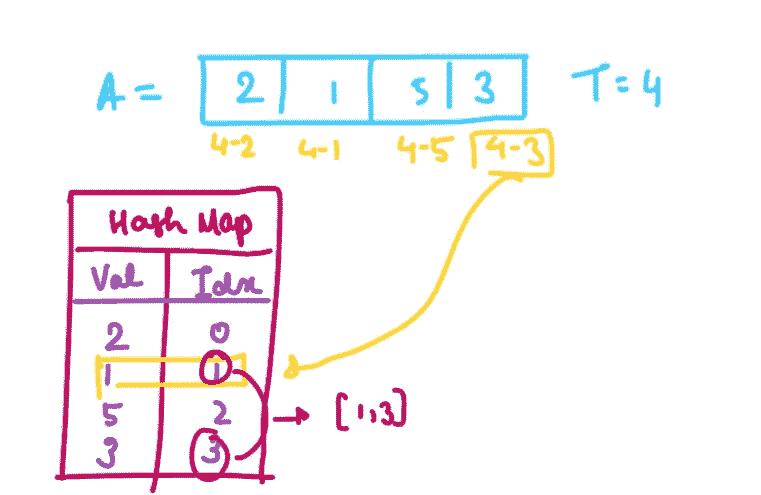 A = 2 1 5 3 T = 4
4-2 4-1 4-5 4-3
Hash Map
Val Idx
2 0
1 1
5 2
3 3
→ [1,3]